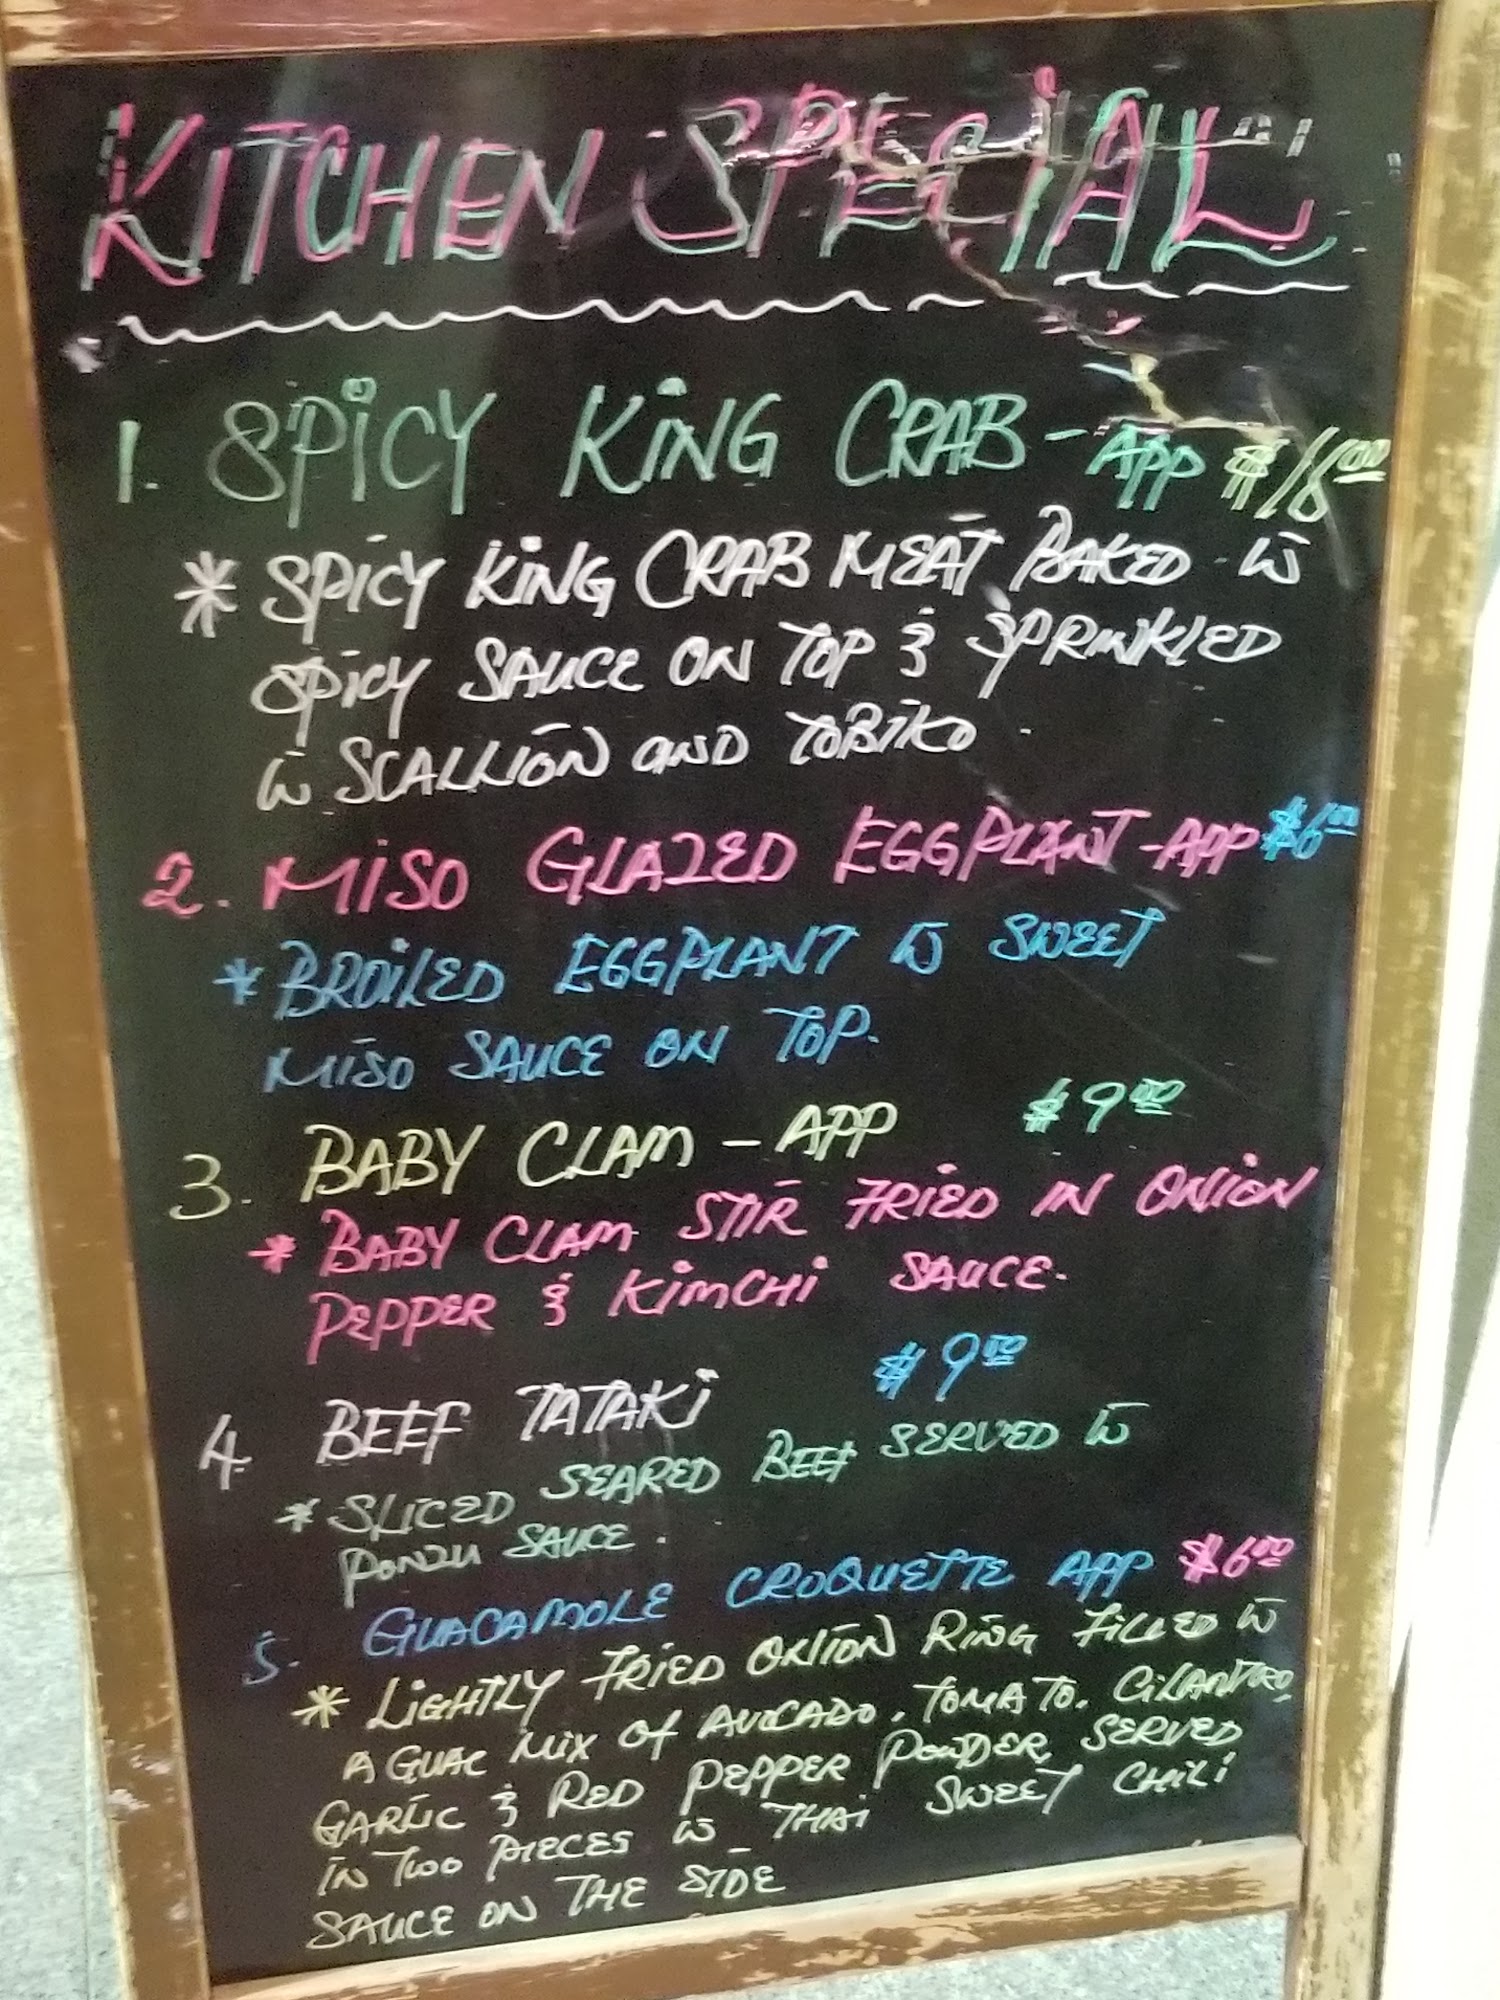 KITCHEN SPECIAL
1. SPICY KING CRAB - APP $18.00
* SPICY KING CRAB MEAT BAKED W
SPICY SAUCE ON TOP & SPRINKLED
W SCALLION AND TOBIKO
2. MISO GLAZED EGGPLANT - APP $6.00
* BROILED EGGPLANT W SWEET
MISO SAUCE ON TOP.
3. BABY CLAM - APP $9.00
* BABY CLAM STIR FRIED IN ONION
PEPPER & KIMCHI SAUCE.
4. BEEF TATAKI $9.00
* SLICED SEARED BEEF SERVED W
PONZU SAUCE.
5. GUACAMOLE CROQUETTE APP $6.00
* LIGHTLY FRIED ONION RING FILLED W
A GUAC MIX OF AVOCADO, TOMATO, CILANTRO
GARLIC & RED PEPPER POWDER, SERVED
IN TWO PIECES W THAI SWEET CHILI
SAUCE ON THE SIDE